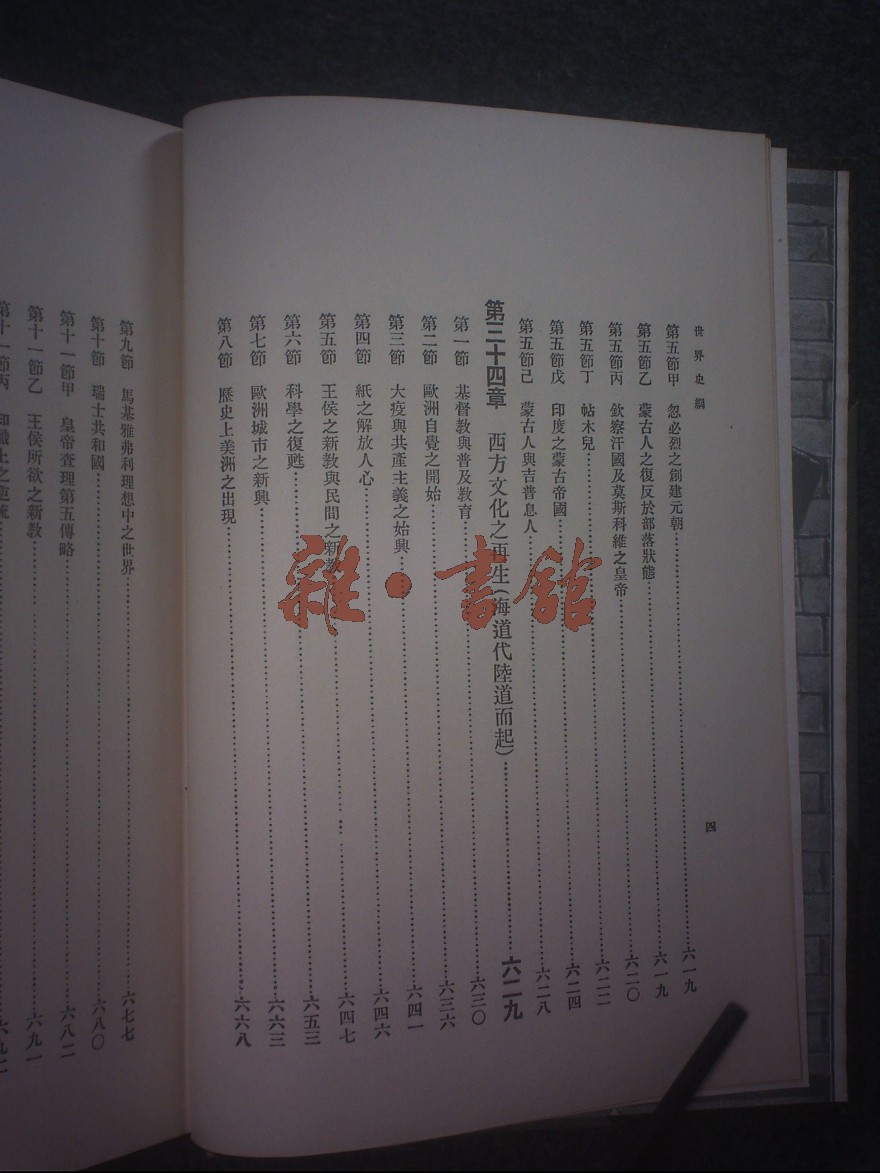 世界史綱
第五節甲 忽必烈之創建元朝 六一九
第五節乙 蒙古人之復反於部落狀態 六一九
第五節丙 欽察汗國及莫斯科維之皇帝 六二〇
第五節丁 帖木兒 六二二
第五節戊 印度之蒙古帝國 六二四
第五節己 蒙古人與吉普息人 六二八
第三十四章 西方文化之再生(海道代陸道而起) 六二九
第一節 基督教與普及教育 六三〇
第二節 歐洲自覺之開始 六三六
第三節 大疫與共產主義之始興 六四一
第四節 紙之解放人心 六四六
第五節 王侯之新教與民間之新教 六四七
第六節 科學之復甦 六五三
第七節 歐洲城市之新興 六六三
第八節 歷史上美洲之出現 六六八
四
第九節 馬基雅弗利理想中之世界 六七七
第十節 瑞士共和國 六八〇
第十一節甲 皇帝查理第五傳略 六八二
第十一節乙 王侯所欲之新教 六九一
第十一節丙
雜·書館